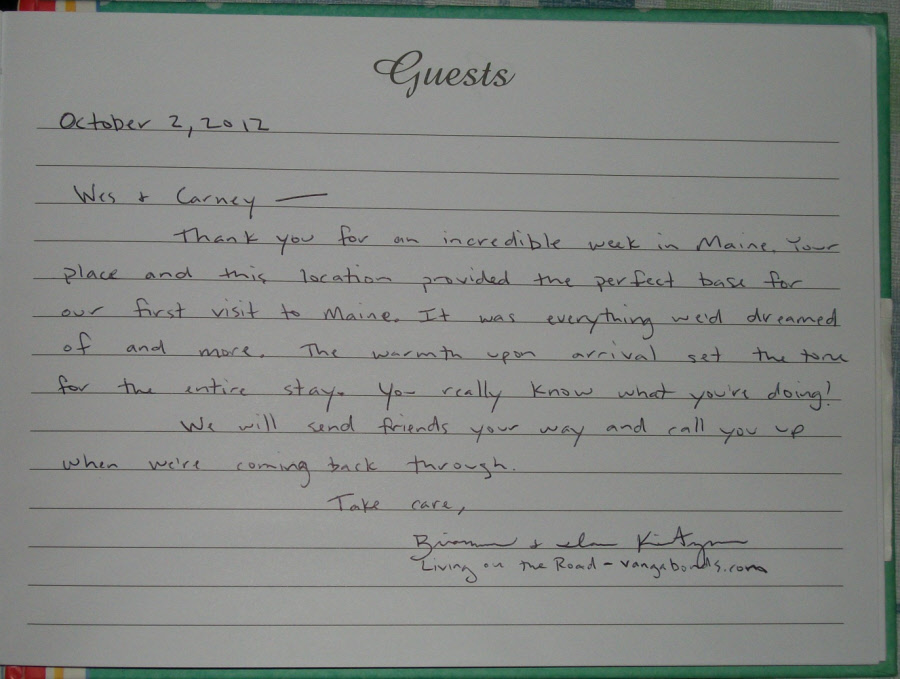 Guests
October 2, 2012
Wes & Carney —
Thank you for an incredible week in Maine. Your
place and this location provided the perfect base for
our first visit to Maine. It was everything we'd dreamed
of and more. The warmth upon arrival set the tone
for the entire stay. You really know what you're doing!
We will send friends your way and call you up
when we're coming back through.
Take care,
&
Living on the Road - vangabonds.com